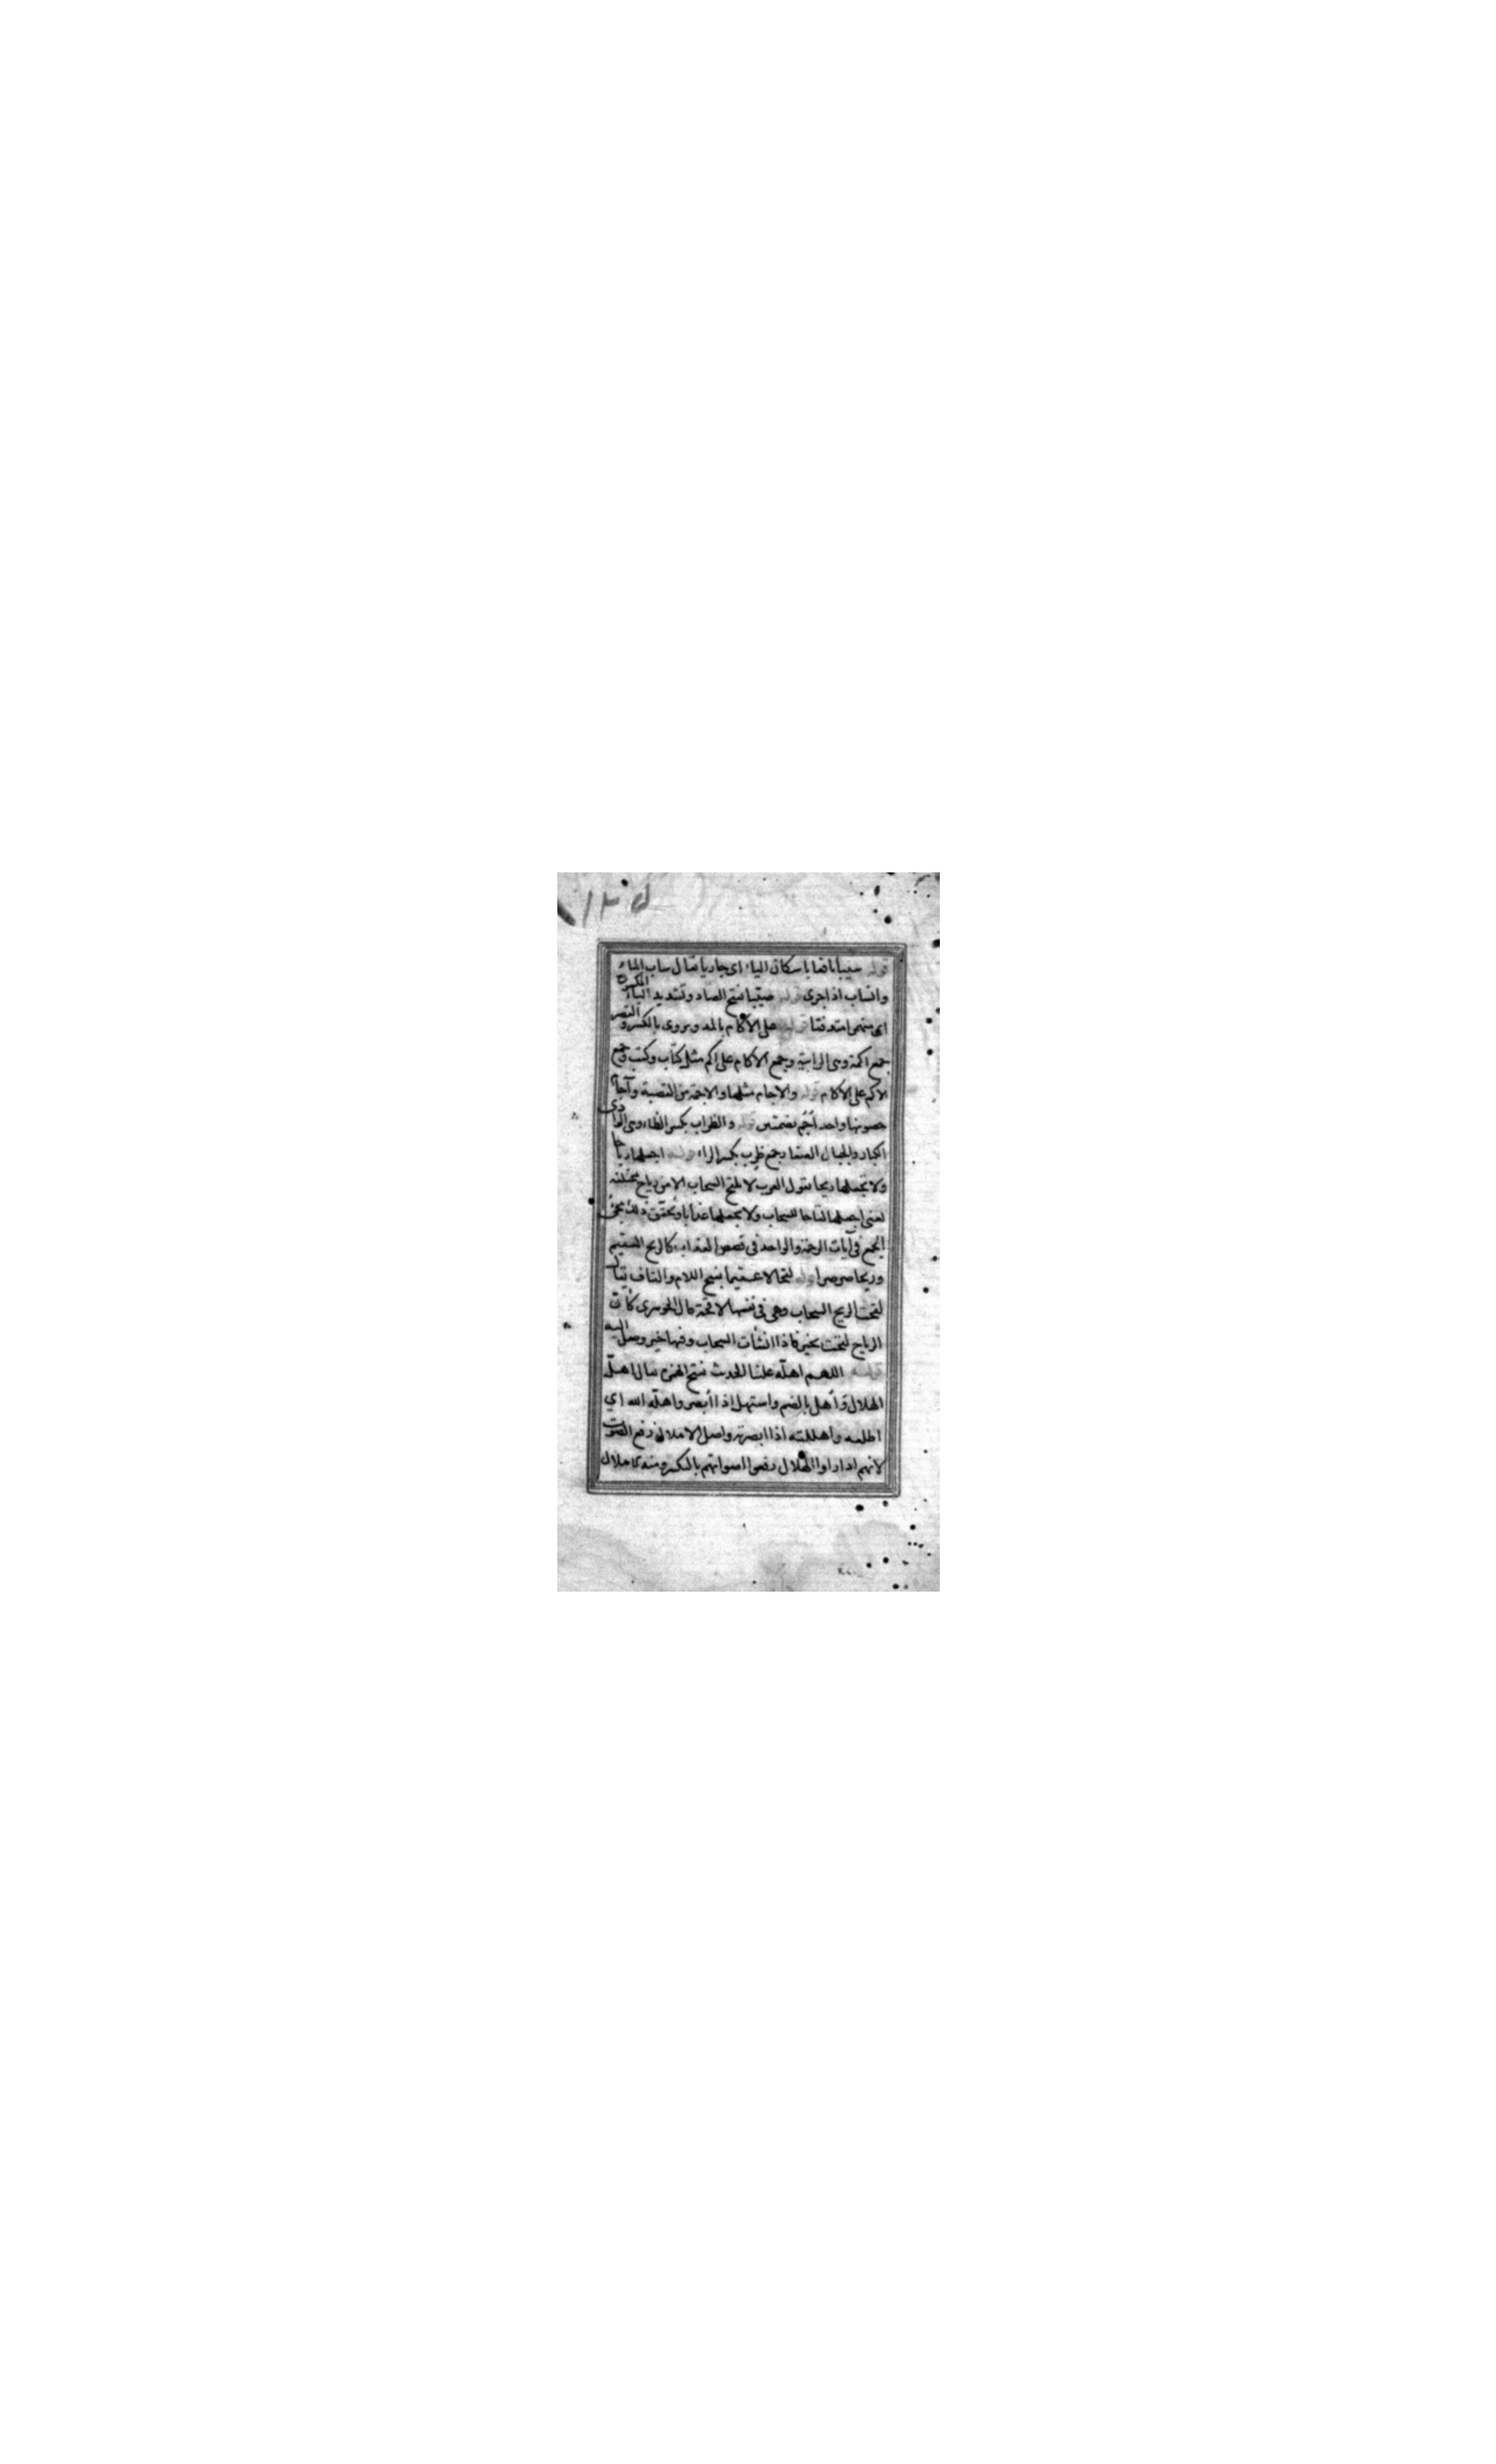 ١٢٥
قوله سيبا نافعا باسكان الياء اى جاريا يقال ساب الماء
وانساب اذا جرى قوله صيّبا بفتح الصاد وتشديد الياء المكسورة
اى منهمرا متدفقا قوله على الآكام بالمد ويروى بالكسر والقصر
جمع اكمة وهى الرابية وجمع الاكام على اكم مثل كتاب وكتب وجمع
الاكم على الاكام قوله والاجام مثلها والاجمة من القصبة وآجام
حصونها واحد اُجُم بضمتين قوله والظراب بكسر الظاء وهى
الكبار والجبال الصغار جمع ظرب بكسر الراء قوله اجعلها رياحا
ولا تجعلها ريحا تقول العرب لا تلقح السحاب الا من رياح مختلفة
يعنى اجعلها لقاحا للسحاب ولا تجعلها عذابا وتحقق ذلك مجئ
الجمع فى آيات الرحمة والواحد فى قصص العذاب كالريح العقيم
وريحا صرصرا قوله لقحا لا عقيما بفتح اللام والقاف يقال
لقحت الريح السحاب وهى فى نفسها لاقحة قال الجوهرى كانّ
الرياح لقحت بخير فاذا انشأت السحاب وفيها خير وصل اليه
قوله اللهم اهلّه علينا الحديث بفتح الهمزة يقال اهلّ
الهلال وأُهل بالضم واستهل اذا أبصر واهلّه الله اي
اطلعه واهللته اذا ابصرته واصل الاهلال رفع الصوت
لانهم اذا راوا الهلال رفعوا اصواتهم بالتكبير ومنه الاهلال